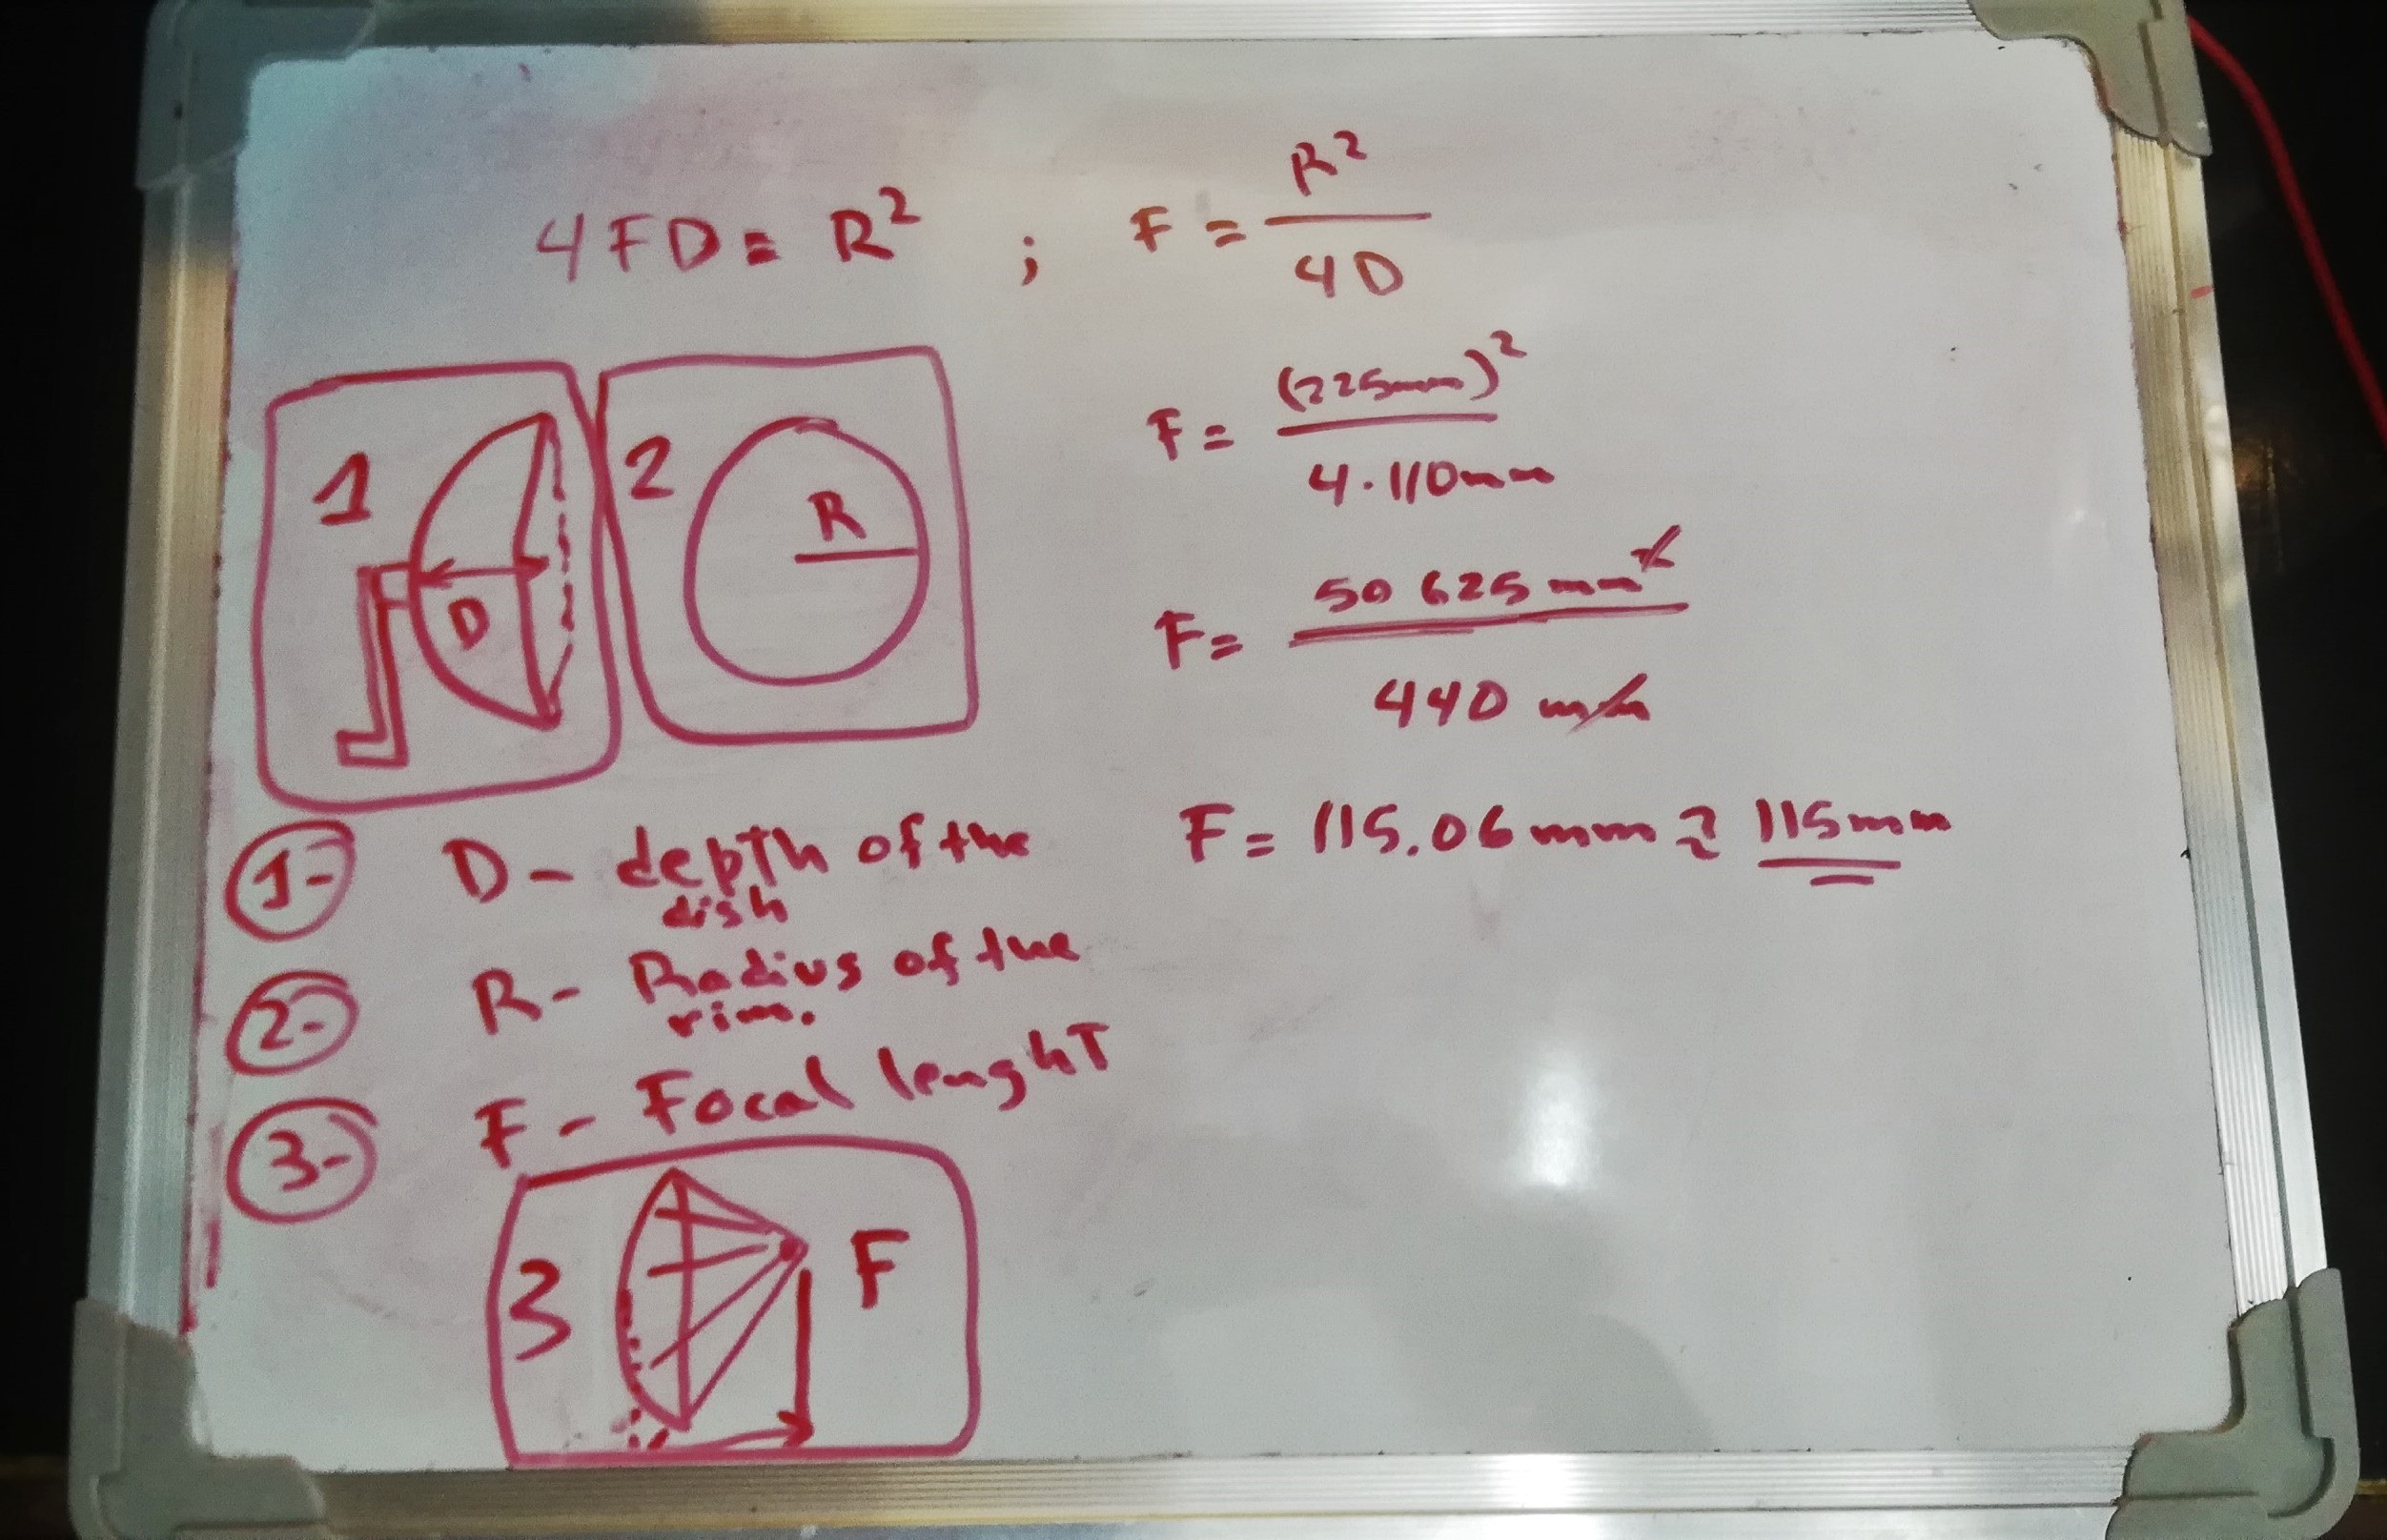 4FD = R² ; F = R² / 4D
1
D
2
R
F = (225mm)² / 4·110mm
F = 50 625 mm² / 440 mm
F = 115.06mm ≈ 115mm
1- D - depth of the
dish
2- R - Radius of the
rim.
3- F - Focal lenghT
3
F